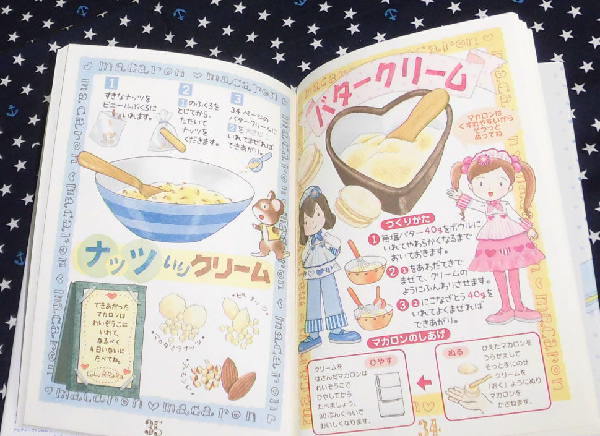 macaron
バタークリーム
マカロンは
くずれやすいから
そうっと
あつかってね
つくりかた
1 無塩バター40gをボウルに
いれてやわらかくなるまで
おいておきます。
2 1をあわだてきで
まぜて、クリームの
ようにふんわりさせます。
3 2にこなざとう40gを
いれてよくまぜれば
できあがり。
マカロンのしあげ
ぬる
ひえたマカロンを
うらがえして
そっと手にのせ
クリームを
「おく」ようにぬり
マカロンを
かさねます。
ひやす
クリームを
はさんだマカロンは
れいぞうこで
ひやしてから
たべましょう。
30ぷんくらいで
おいしくなります。
34
macaron
1
すきなナッツを
ビニールぶくろに
いれます。
2
1のふくろを
とじてから、
たたいて
ナッツを
くだきます。
3
34ページの
バタークリームに
2を大さじ1
いれてまぜれば
できあがり。
ナッツいりクリーム
できあがった
マカロンは
れいぞうこに
いれて、
なるべく
4日いないに
たべてね。
マカダミアナッツ
35